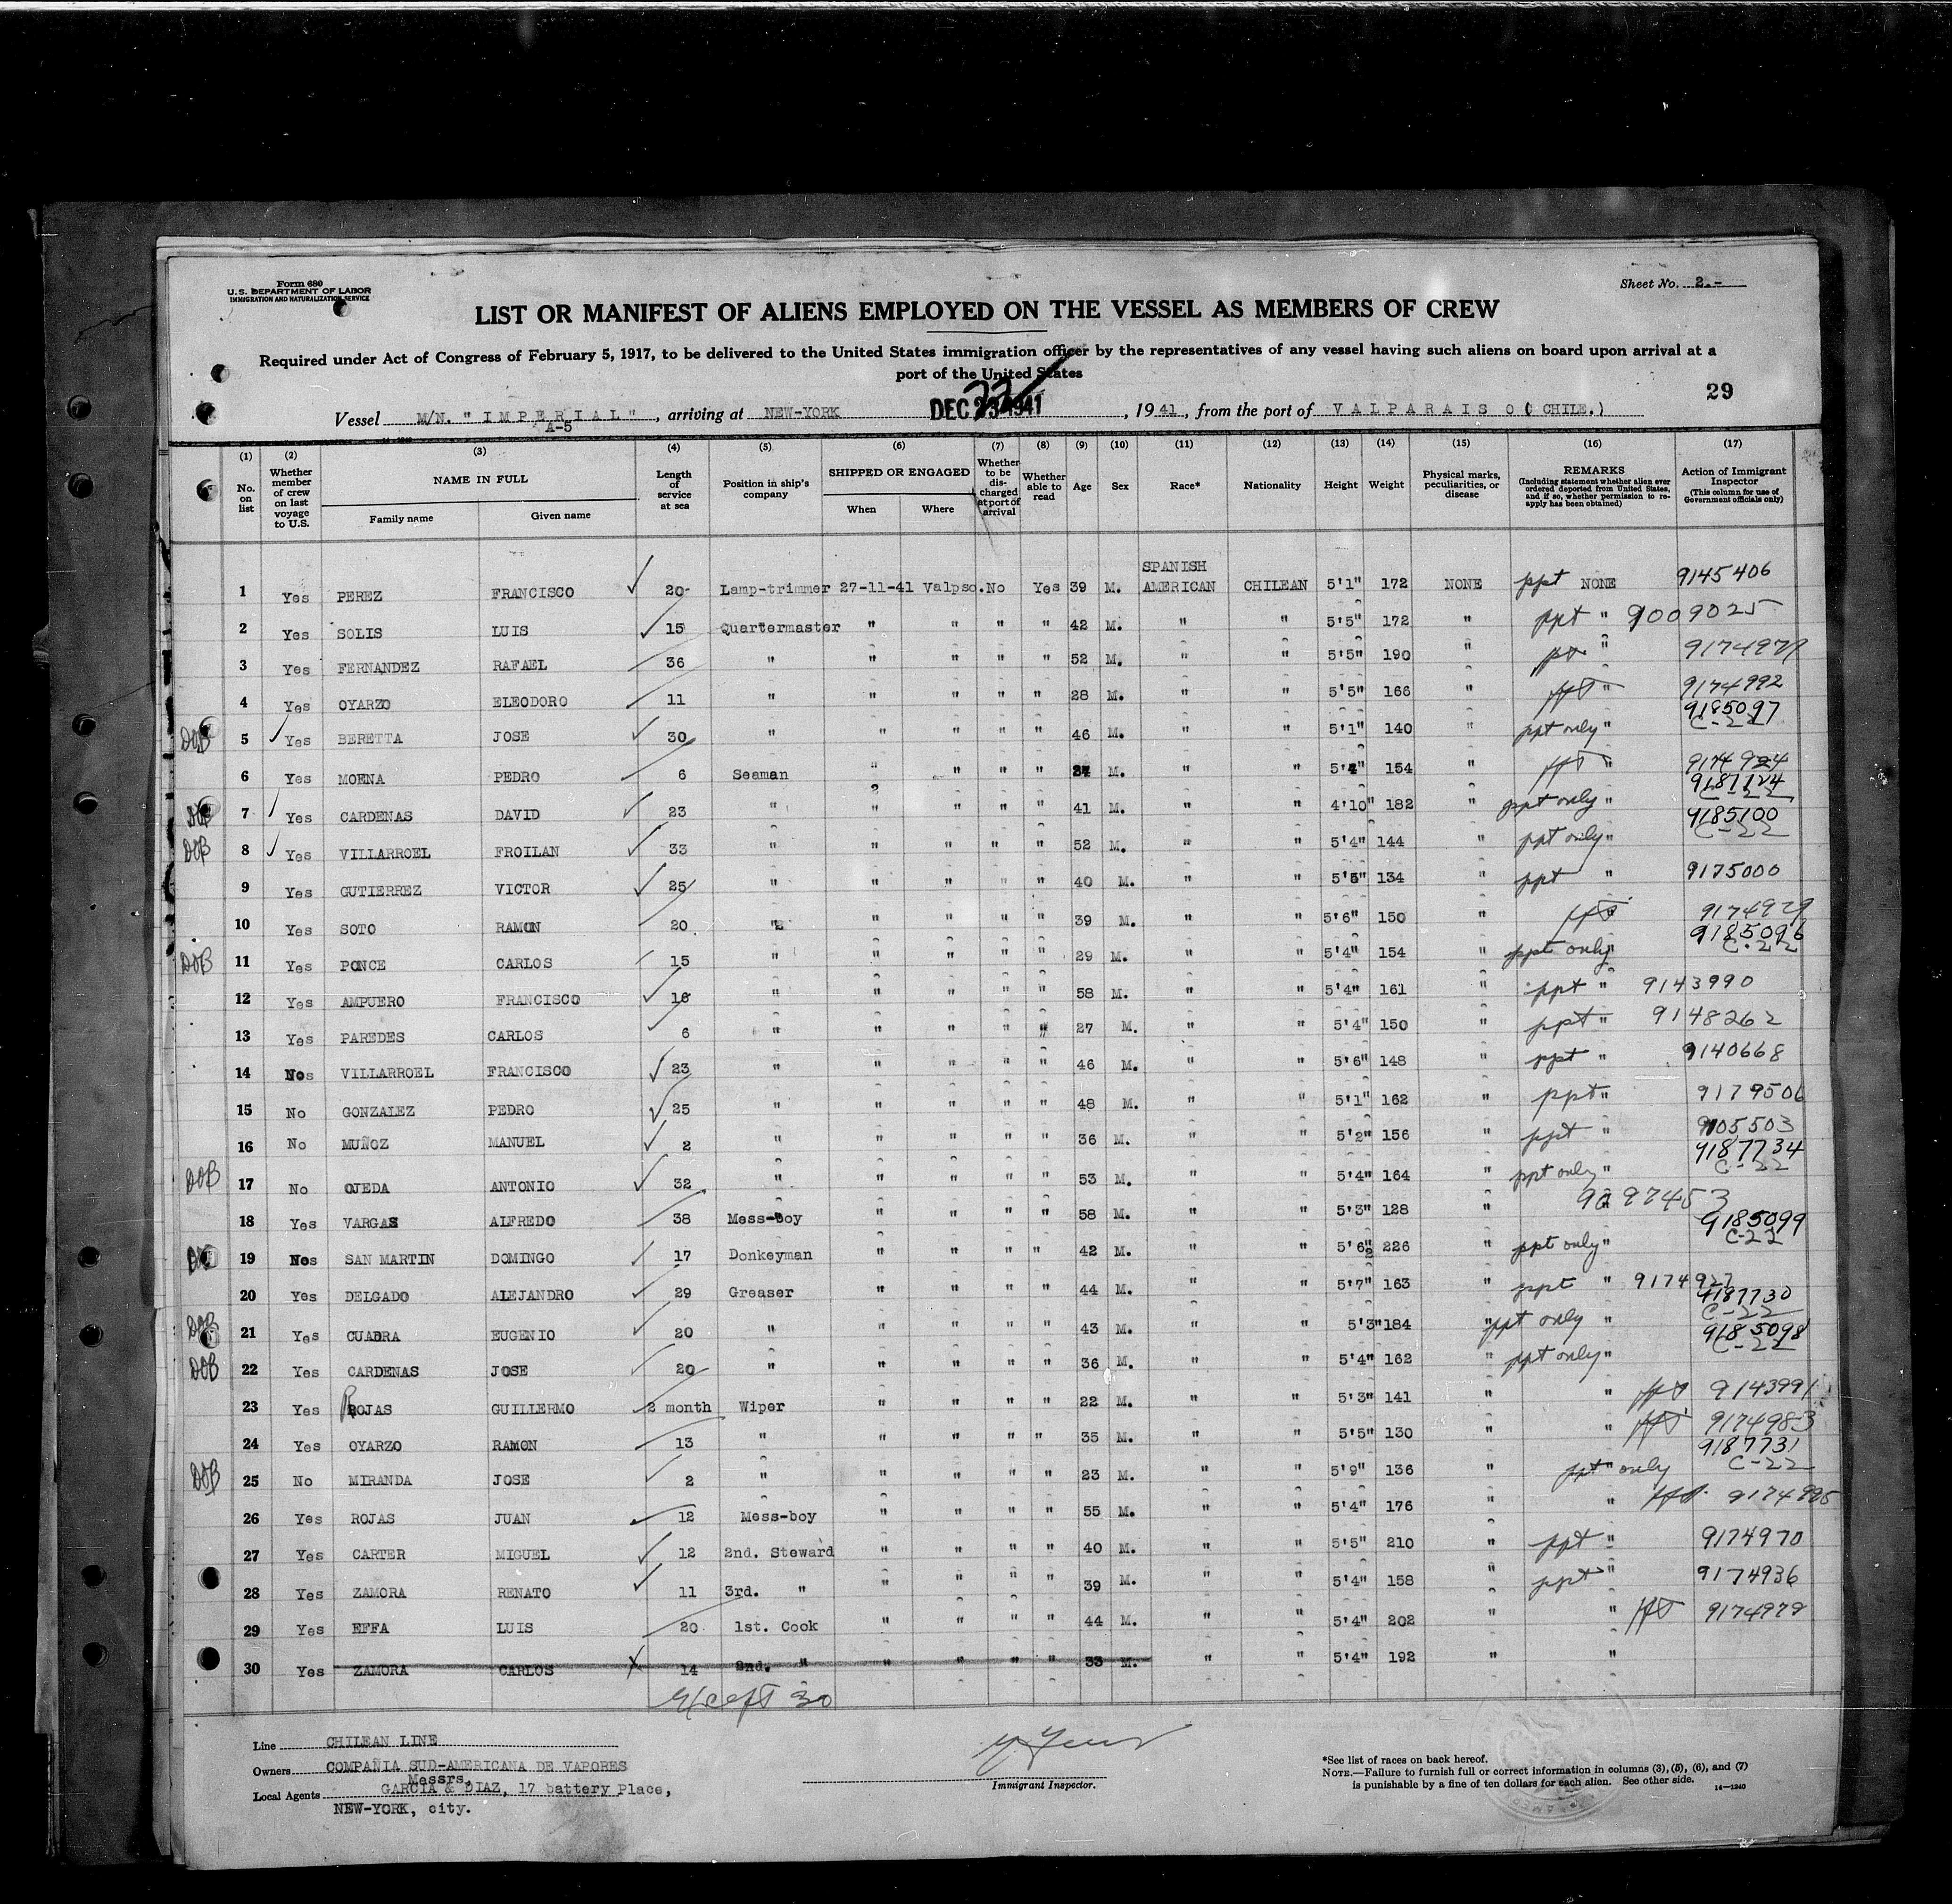 Form 680
U. S. DEPARTMENT OF LABOR
IMMIGRATION AND NATURALIZATION SERVICE
Sheet No. 2.-
LIST OR MANIFEST OF ALIENS EMPLOYED ON THE VESSEL AS MEMBERS OF CREW
Required under Act of Congress of February 5, 1917, to be delivered to the United States immigration officer by the representatives of any vessel having such aliens on board upon arrival at a
port of the United States
29
Vessel M/N. "IMPERIAL", arriving at NEW-YORK DEC 23 1941, 1941, from the port of VALPARAISO ( CHILE.)
A-5
(1) (2) (3) (4) (5) (6) (7) (8) (9) (10) (11) (12) (13) (14) (15) (16) (17)
No. on list
Whether member of crew on last voyage to U.S.
NAME IN FULL
Family name
Given name
Length of service at sea
Position in ship's company
SHIPPED OR ENGAGED
When
Where
Whether to be discharged at port of arrival
Whether able to read
Age
Sex
Race*
Nationality
Height
Weight
Physical marks, peculiarities, or disease
REMARKS
(Including statement whether alien ever ordered deported from United States, and if so, whether permission to re-apply has been obtained)
Action of Immigrant Inspector
(This column for use of Government officials only)
SPANISH
1 Yes PEREZ FRANCISCO 20 Lamp-trimmer 27-11-41 Valpso. No Yes 39 M. AMERICAN CHILEAN 5'1" 172 NONE ppt NONE 9145406
2 Yes SOLIS LUIS 15 Quartermaster " " " " 42 M. " " 5'5" 172 " ppt " 9009025
3 Yes FERNANDEZ RAFAEL 36 " " " " " 52 M. " " 5'5" 190 " ppt "
4 Yes OYARZO ELEODORO 11 " " " " " 28 M. " " 5'5" 166 " ppt " 9174992
DOB 5 Yes BERETTA JOSE 30 " " " " " 46 M. " " 5'1" 140 " ppt only " 9185097 C-22
6 Yes MOENA PEDRO 6 Seaman " " " " M. " " 5'4" 154 " ppt "
DOB 7 Yes CARDENAS DAVID 23 " " " " " 41 M. " " 4'10" 182 " ppt only " 9187724 C-22
DOB 8 Yes VILLARROEL FROILAN 33 " " " " " 52 M. " " 5'4" 144 " ppt only " 9185100 C-22
9 Yes GUTIERREZ VICTOR 25 " " " " " 40 M. " " 5'5" 134 " ppt " 9175000
10 Yes SOTO RAMON 20 " " " " " 39 M. " " 5'6" 150 " ppt " 9174929
DOB 11 Yes PONCE CARLOS 15 " " " " " 29 M. " " 5'4" 154 " ppt only " 9185096 C-22
12 Yes AMPUERO FRANCISCO 16 " " " " " 58 M. " " 5'4" 161 " ppt " 9143990
13 Yes PAREDES CARLOS 6 " " " " " 27 M. " " 5'4" 150 " ppt " 9148262
14 Nos VILLARROEL FRANCISCO 23 " " " " " 46 M. " " 5'6" 148 " ppt " 9140668
15 No GONZALEZ PEDRO 25 " " " " " 48 M. " " 5'1" 162 " ppt " 9179506
16 No MUÑOZ MANUEL 2 " " " " " 36 M. " " 5'2" 156 " ppt " 9105503
DOB 17 No OJEDA ANTONIO 32 " " " " " 53 M. " " 5'4" 164 " ppt only " 9187734 C-22
18 Yes VARGAS ALFREDO 38 Mess-boy " " " " 58 M. " " 5'3" 128 "
DOB 19 Nos SAN MARTIN DOMINGO 17 Donkeyman " " " " 42 M. " " 5'6" 226 " ppt only " 9185099 C-22
20 Yes DELGADO ALEJANDRO 29 Greaser " " " " 44 M. " " 5'7" 163 " ppt " 9174927
DOB 21 Yes CUADRA EUGENIO 20 " " " " " 43 M. " " 5'3" 184 " ppt only " 9187730 C-22
DOB 22 Yes CARDENAS JOSE 20 " " " " " 36 M. " " 5'4" 162 " ppt only " 9185098 C-22
23 Yes ROJAS GUILLERMO 2 month Wiper " " " " 22 M. " " 5'3" 141 " " ppt 9143991
24 Yes OYARZO RAMON 13 " " " " " 35 M. " " 5'5" 130 " " ppt 9174983
DOB 25 No MIRANDA JOSE 2 " " " " " 23 M. " " 5'9" 136 " ppt " only 9187731 C-22
26 Yes ROJAS JUAN 12 Mess-boy " " " " 55 M. " " 5'4" 176 " " ppt
27 Yes CARTER MIGUEL 12 2nd. Steward " " " " 40 M. " " 5'5" 210 " ppt " 9174970
28 Yes ZAMORA RENATO 11 3rd. " " " " " 39 M. " " 5'4" 158 " ppt " 9174936
29 Yes EFFA LUIS 20 1st. Cook " " " " 44 M. " " 5'4" 202 " " ppt 9174979
30 Yes ZAMORA CARLOS 14 2nd. " " " " " 33 M. " " 5'4" 192 " "
Except 30
Line CHILEAN LINE
Owners COMPAÑIA SUD-AMERICANA DE VAPORES
Messrs.
Local Agents GARCIA & DIAZ, 17 battery Place,
NEW-YORK, city.
Immigrant Inspector.
*See list of races on back hereof.
NOTE.—Failure to furnish full or correct information in columns (3), (5), (6), and (7)
is punishable by a fine of ten dollars for each alien. See other side.
14—1240